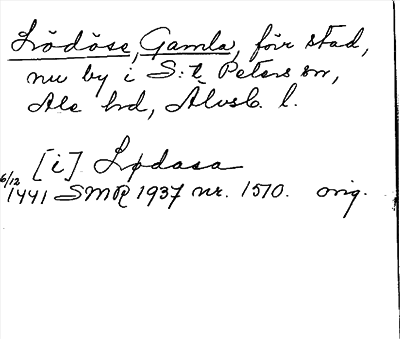 Lödöse, Gamla, förr stad,
nu by i S:t Peters sn,
Ale hd, Älvsb. l.
[i] Lødasa
6/12 1441 SMR 1937 nr. 1510. orig.